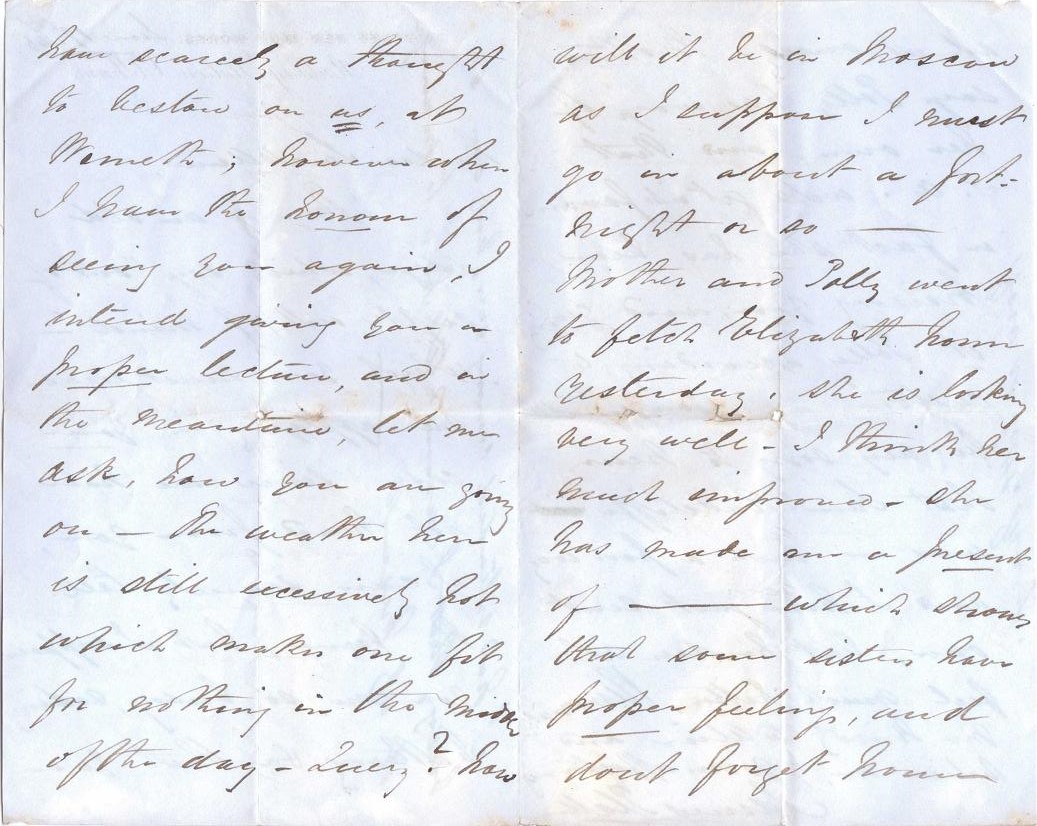 have scarcely a thought
to bestow on us, at
Werneth; however when
I have the honour of
seeing you again, I
intend giving you a
proper lecture, and in
the meantime, let me
ask, how you are going
on – The weather here
is still excessively hot
which makes one fit
for nothing in the middle
of the day – Query? how
will it be in Moscow
as I suppose I must
go in about a fort-
night or so —
Mother and Polly went
to fetch Elizabeth home
yesterday, she is looking
very well – I think her
much improved – she
has made me a present
of ——— which shows
that some sisters have
proper feeling, and
dont forget home